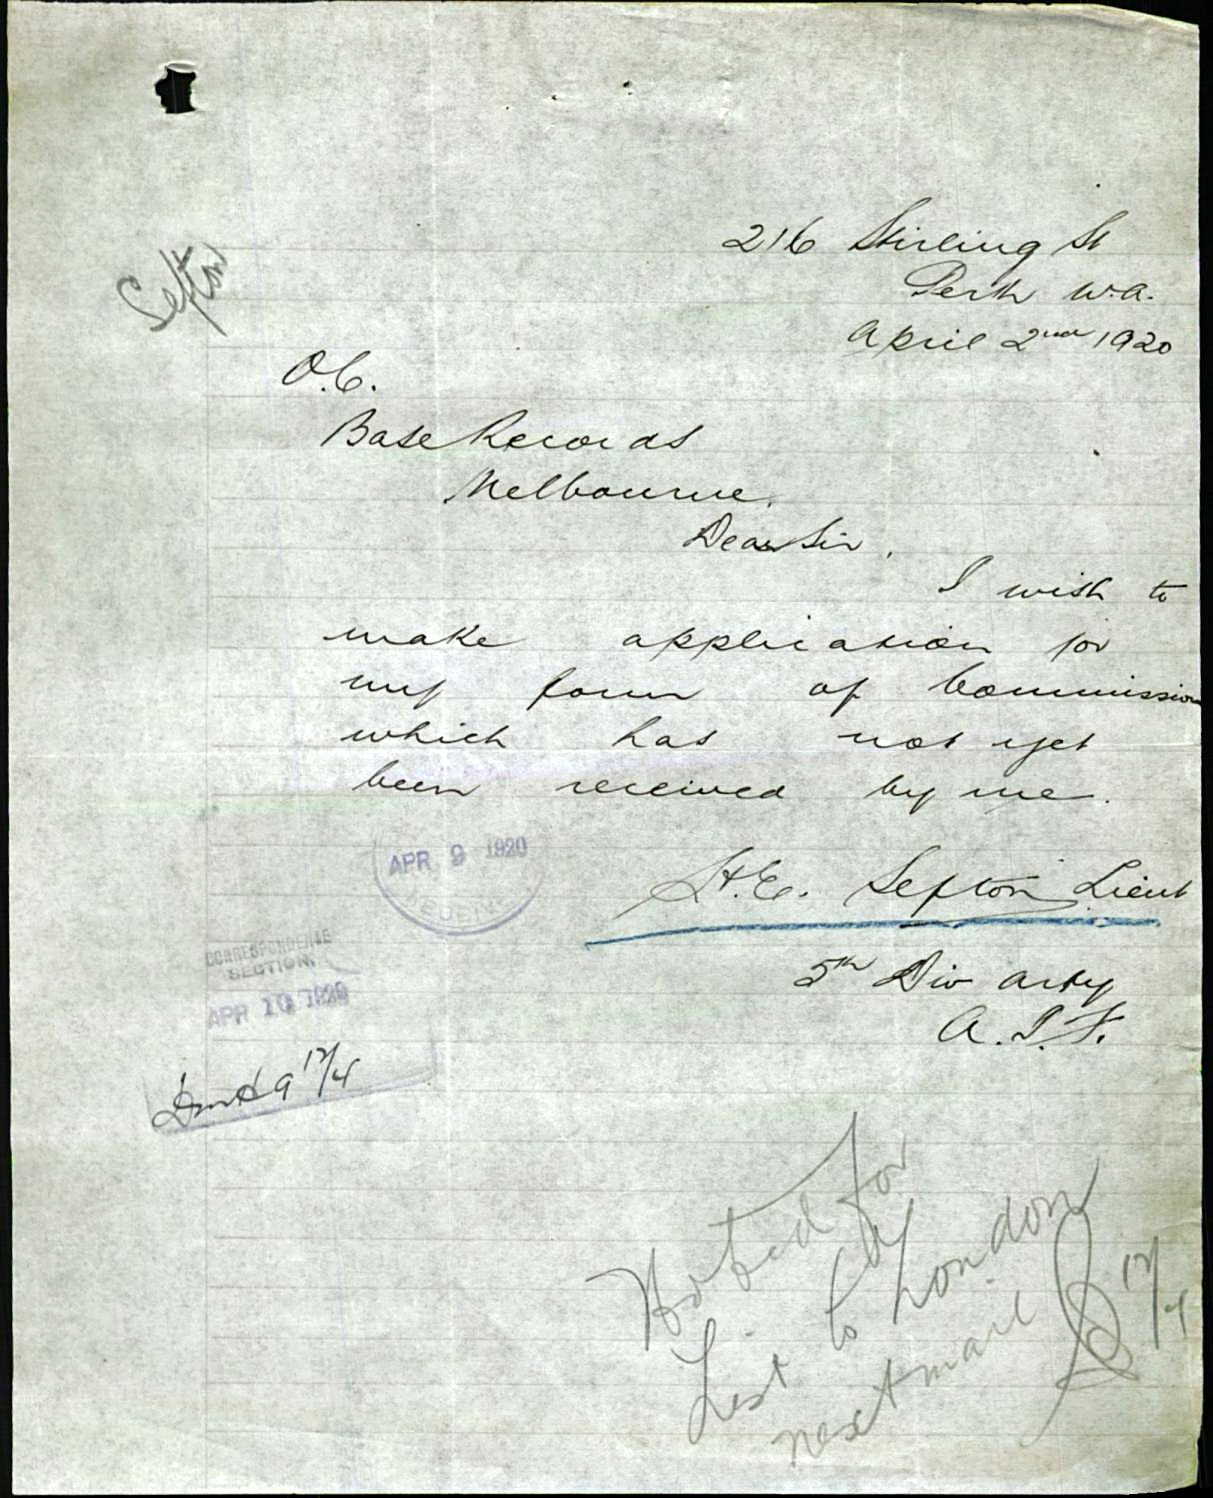 Sefton
216 Stirling St
Perth W.A.
April 2nd 1920
O.C.
Base Records
Melbourne.
Dear Sir,
I wish to
make application for
my form of Commission
which has not yet
been received by me.
APR 9 1920
H.E. Sefton Lieut
5th Div Arty
A.I.F.
CORRESPONDENCE
SECTION.
APR 10 1920
12/4
Noted for
List to London
next mail
12/4